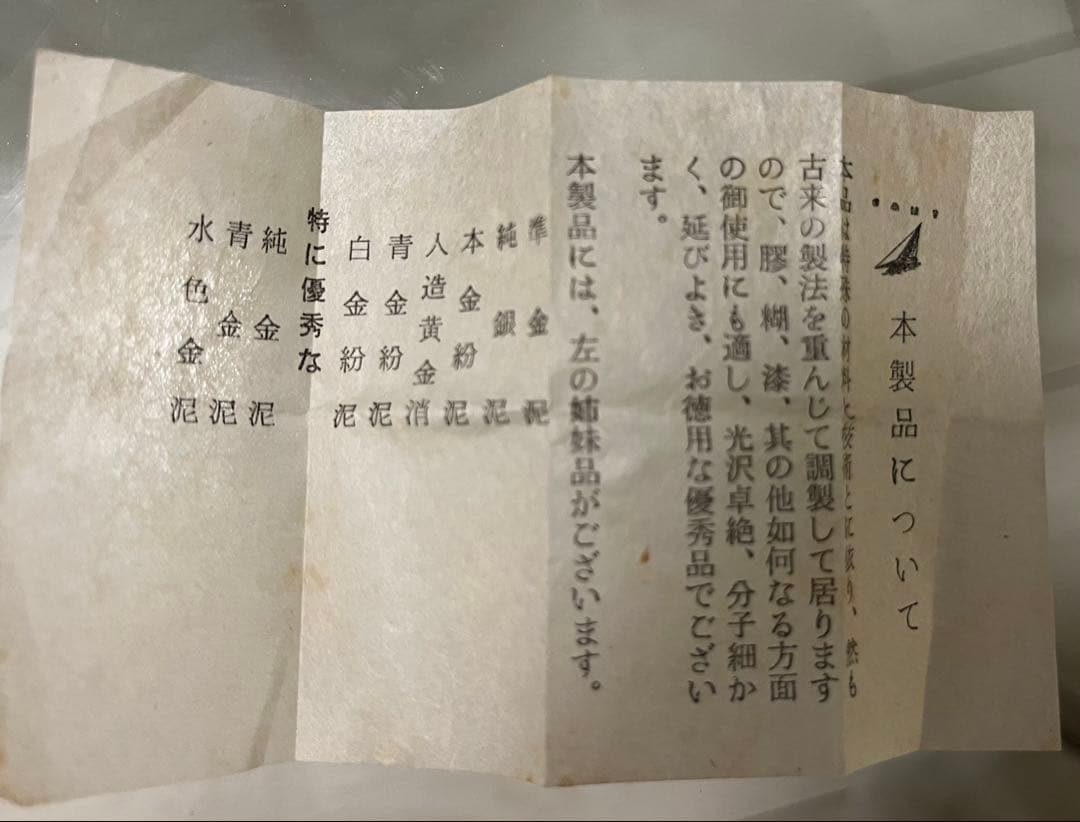 本製品について
本品は特殊の材料と技術とに依り、然も
古来の製法を重んじて調製して居ります
ので、膠、糊、漆、其の他如何なる方面
の御使用にも適し、光沢卓絶、分子細か
く、延びよき、お徳用な優秀品でござい
ます。
本製品には、左の姉妹品がございます。
準金泥
純銀泥
本金紛泥
人造黄金消
青金紛泥
白金紛泥
特に優秀な
純金泥
青金泥
水色金泥